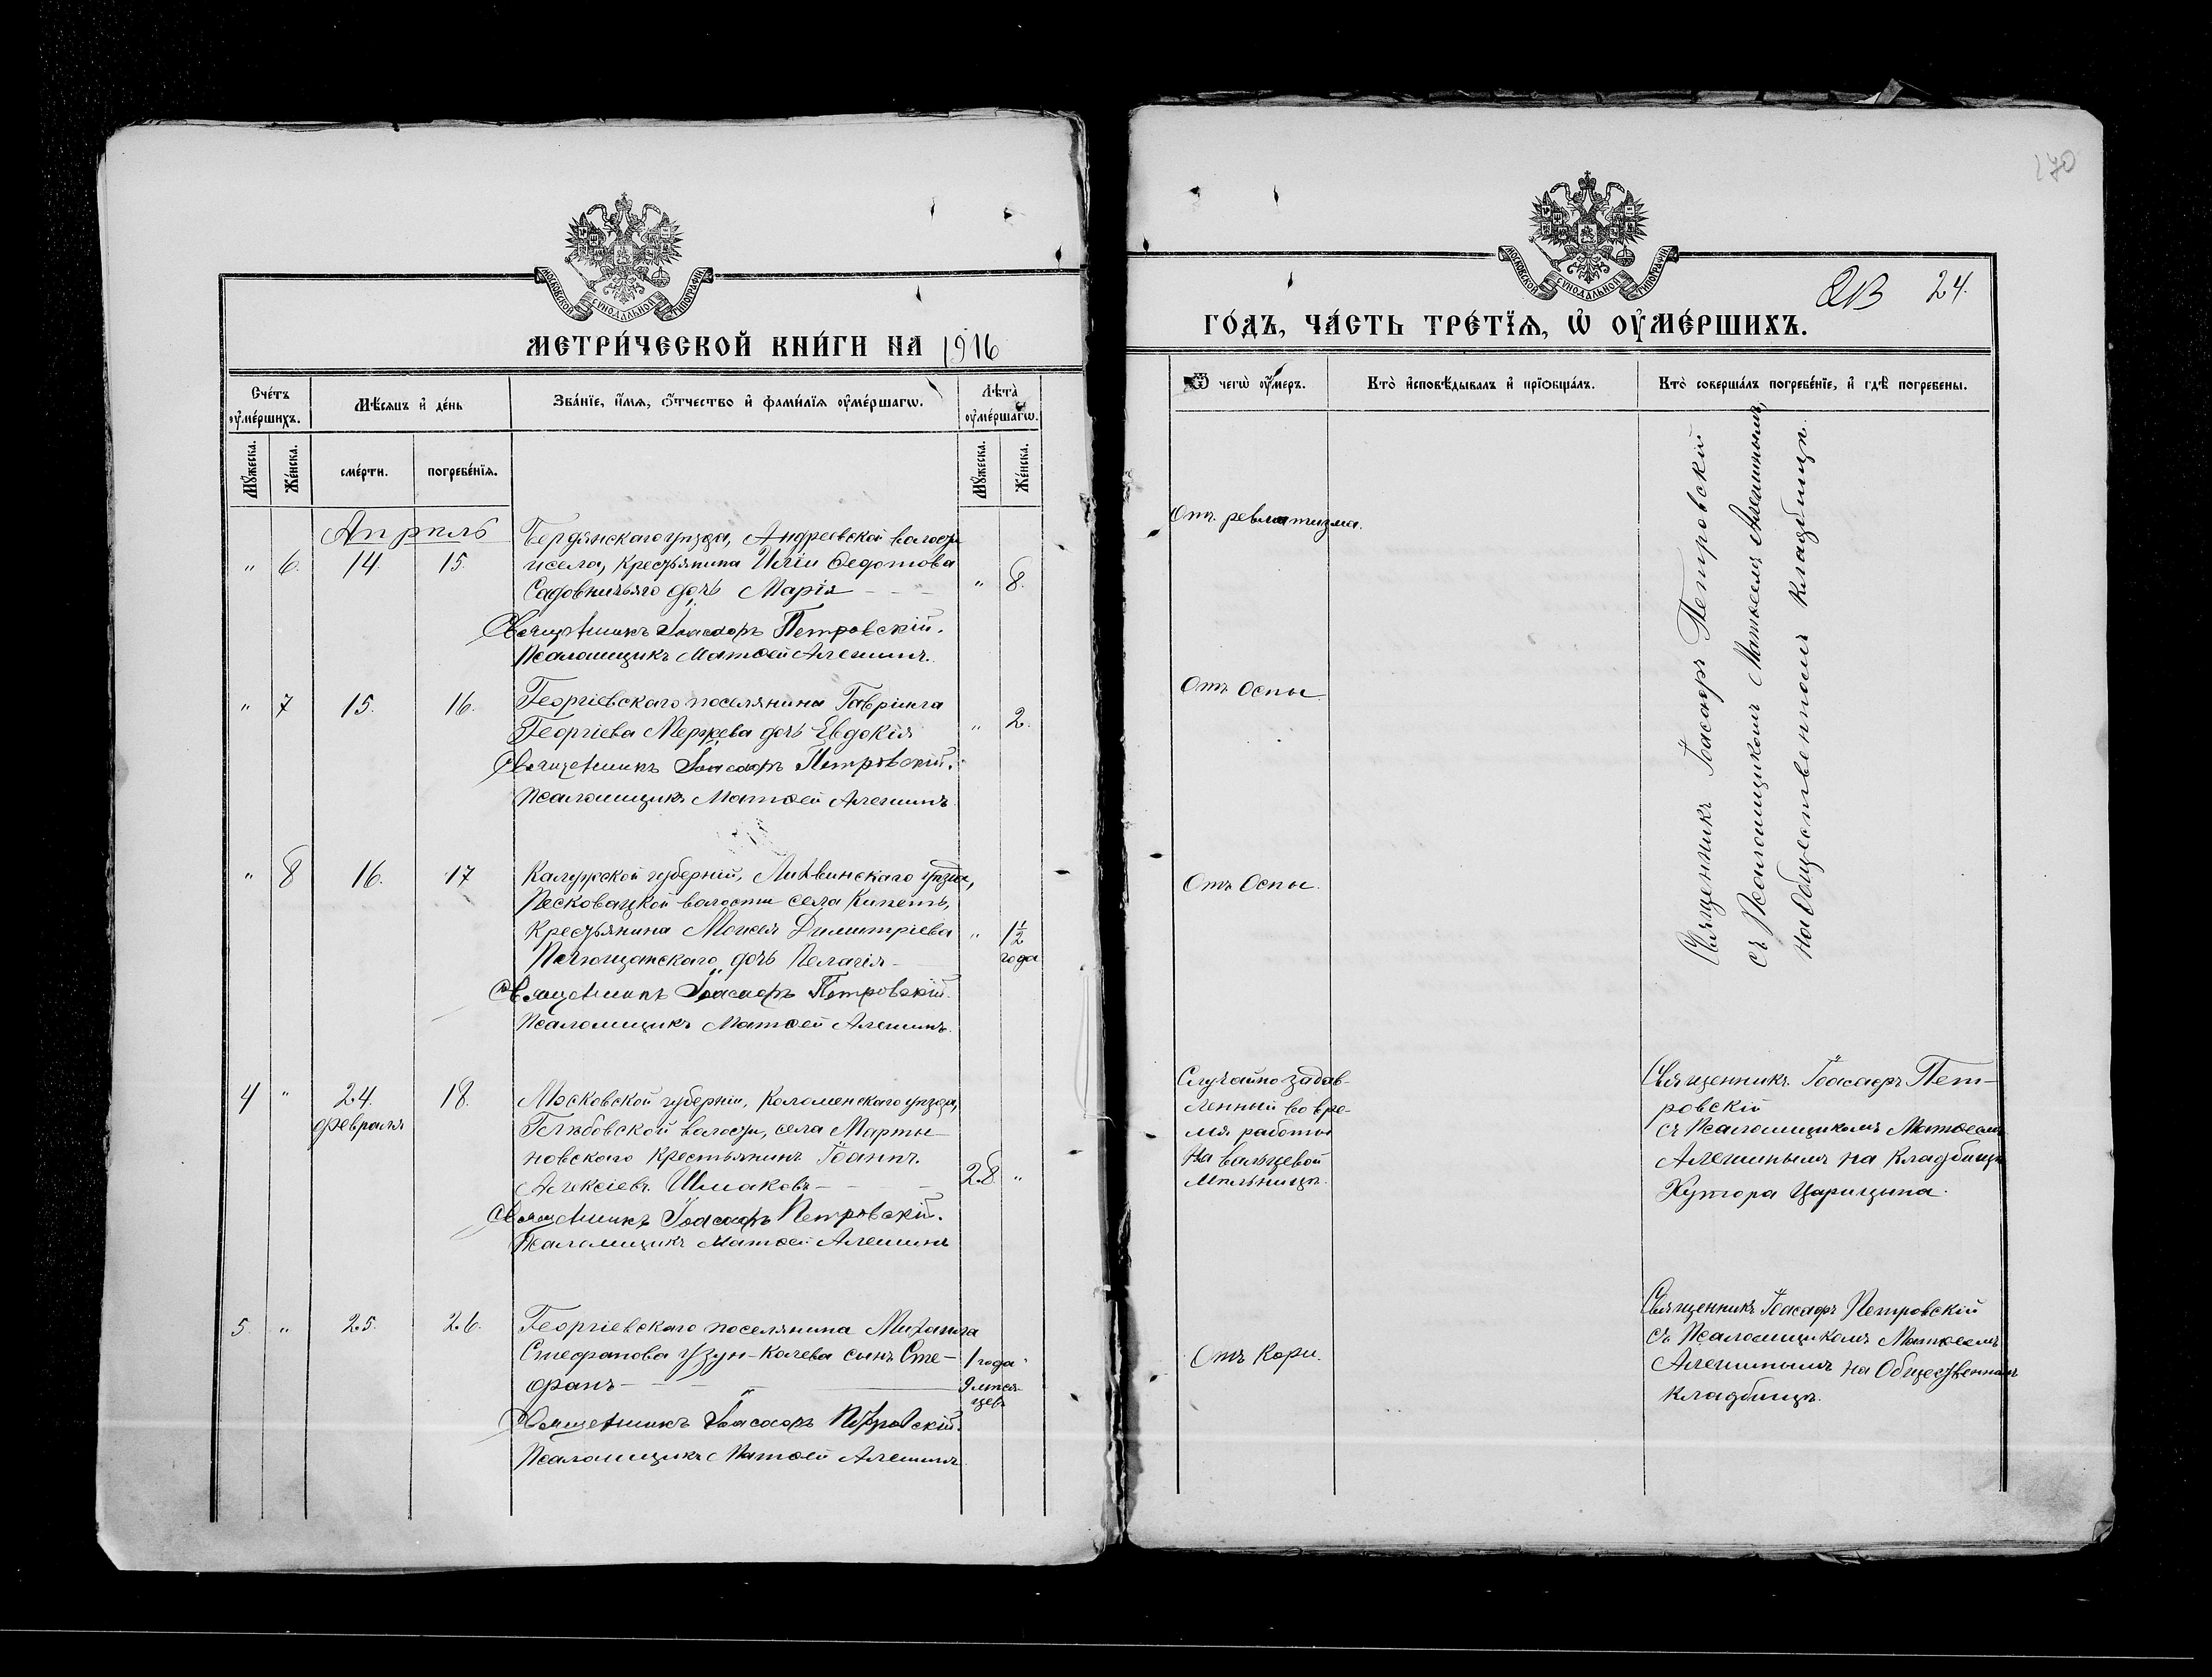 170
МОСКОВСКОЙ СУНОДАЛЬНОЙ ТИПОГРАФІИ
МЕТРИ́ЧЕСКОЙ КНИ́ГИ НА 1916
Сче́тъ оу҆ме́ршихъ.
Мѣ́сяцъ и҆ де́нь
Зва́нїе, и҆́мя, ѻ҆́тчество и҆ фами́лїя оу҆ме́ршагѡ.
Лѣ́та оу҆ме́ршагѡ.
Мꙋ́жеска.
Же́нска.
сме́рти.
погребе́нїя.
Мꙋ́жеска.
Же́нска.
Апрѣль
" 6. 14. 15. Бердянскаго уѣзда, Андреевской волости
и села, крестьянина Иліи Ѳедотова
Садовничьяго дочь Марія " 8.
Священникъ Іоасафъ Петровскій.
Псаломщикъ Матѳей Алешинъ.
" 7 15. 16. Георгіевскаго поселянина Гавріила
Георгіева Мержева дочь Евдокія " 2.
Священникъ Іоасафъ Петровскій.
Псаломщикъ Матѳей Алешинъ.
" 8 16. 17 Калужской губерніи, Лихвинскаго уѣзда,
Песковацкой волости села Кипеть,
крестьянина Моисея Димитріева " 1½ года
дочь Пелагія
Священникъ Іоасафъ Петровскій.
Псаломщикъ Матѳей Алешинъ.
4 " 24. февраля 18. Московской губерніи, Коломенскаго уѣзда,
волости, села Марты-
новскаго крестьянинъ Іоаннъ
Алексіевъ Шмаковъ 28 "
Священникъ Іоасафъ Петровскій.
Псаломщикъ Матѳей Алешинъ
5. " 25. 26. Георгіевскаго поселянина Михаила
Стефанова Узун-Качева сынъ Сте-
фанъ 1 года 9 мѣся-
цев
Священникъ Іоасафъ Петровскій.
Псаломщикъ Матѳей Алешинъ.
МОСКОВСКОЙ СУНОДАЛЬНОЙ ТИПОГРАФІИ
24.
ГО́ДЪ, ЧА́СТЬ ТРЕ́ТЇЯ, Ѡ҆ ОУ҆МЕ́РШИХЪ.
Ѿ чегѡ̀ оу҆́меръ.
Кто̀ и҆сповѣ́дывалъ и҆ прїобща́лъ.
Кто̀ соверша́лъ погребе́нїе, и҆ гдѣ̀ погребены.
Отъ ревматизма.
Отъ Оспы.
Отъ Оспы.
Священникъ Іоасафъ Петровскій
съ Псаломщикомъ Матѳеемъ Алешинымъ,
на Общественномъ кладбищѣ.
Случайно задав-
ленный во вре-
мя работы
На вальцевой
мельницѣ.
Священникъ Іоасафъ Пет-
ровскій
съ Псаломщикомъ Матѳеемъ
Алешинымъ на кладбищѣ
Хутора Царицына.
Отъ Кори.
Священникъ Іоасафъ Петровскій
съ Псаломщикомъ Матѳеемъ
Алешинымъ на Общественномъ
кладбищѣ.